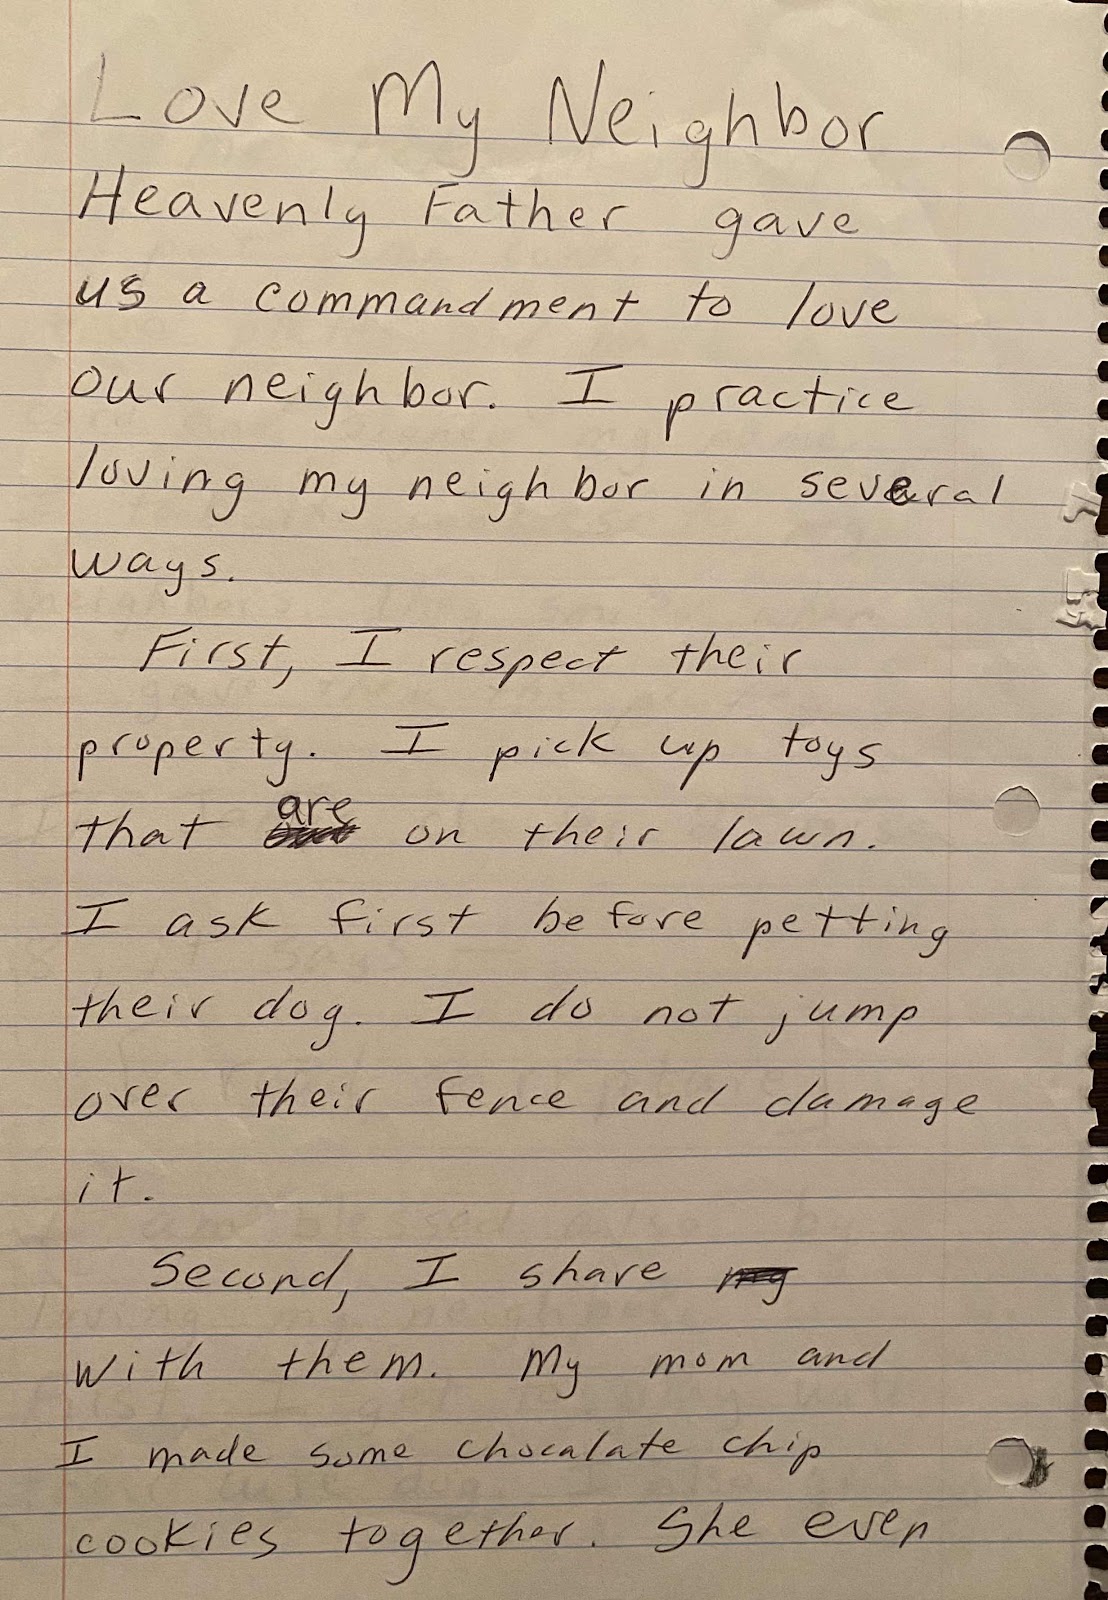 Love My Neighbor
Heavenly Father gave
us a commandment to love
our neighbor. I practice
loving my neighbor in several
ways.
First, I respect their
property. I pick up toys
that are on their lawn.
I ask first before petting
their dog. I do not jump
over their fence and damage
it.
Second, I share my
with them. My mom and
I made some chocalate chip
cookies together. She even